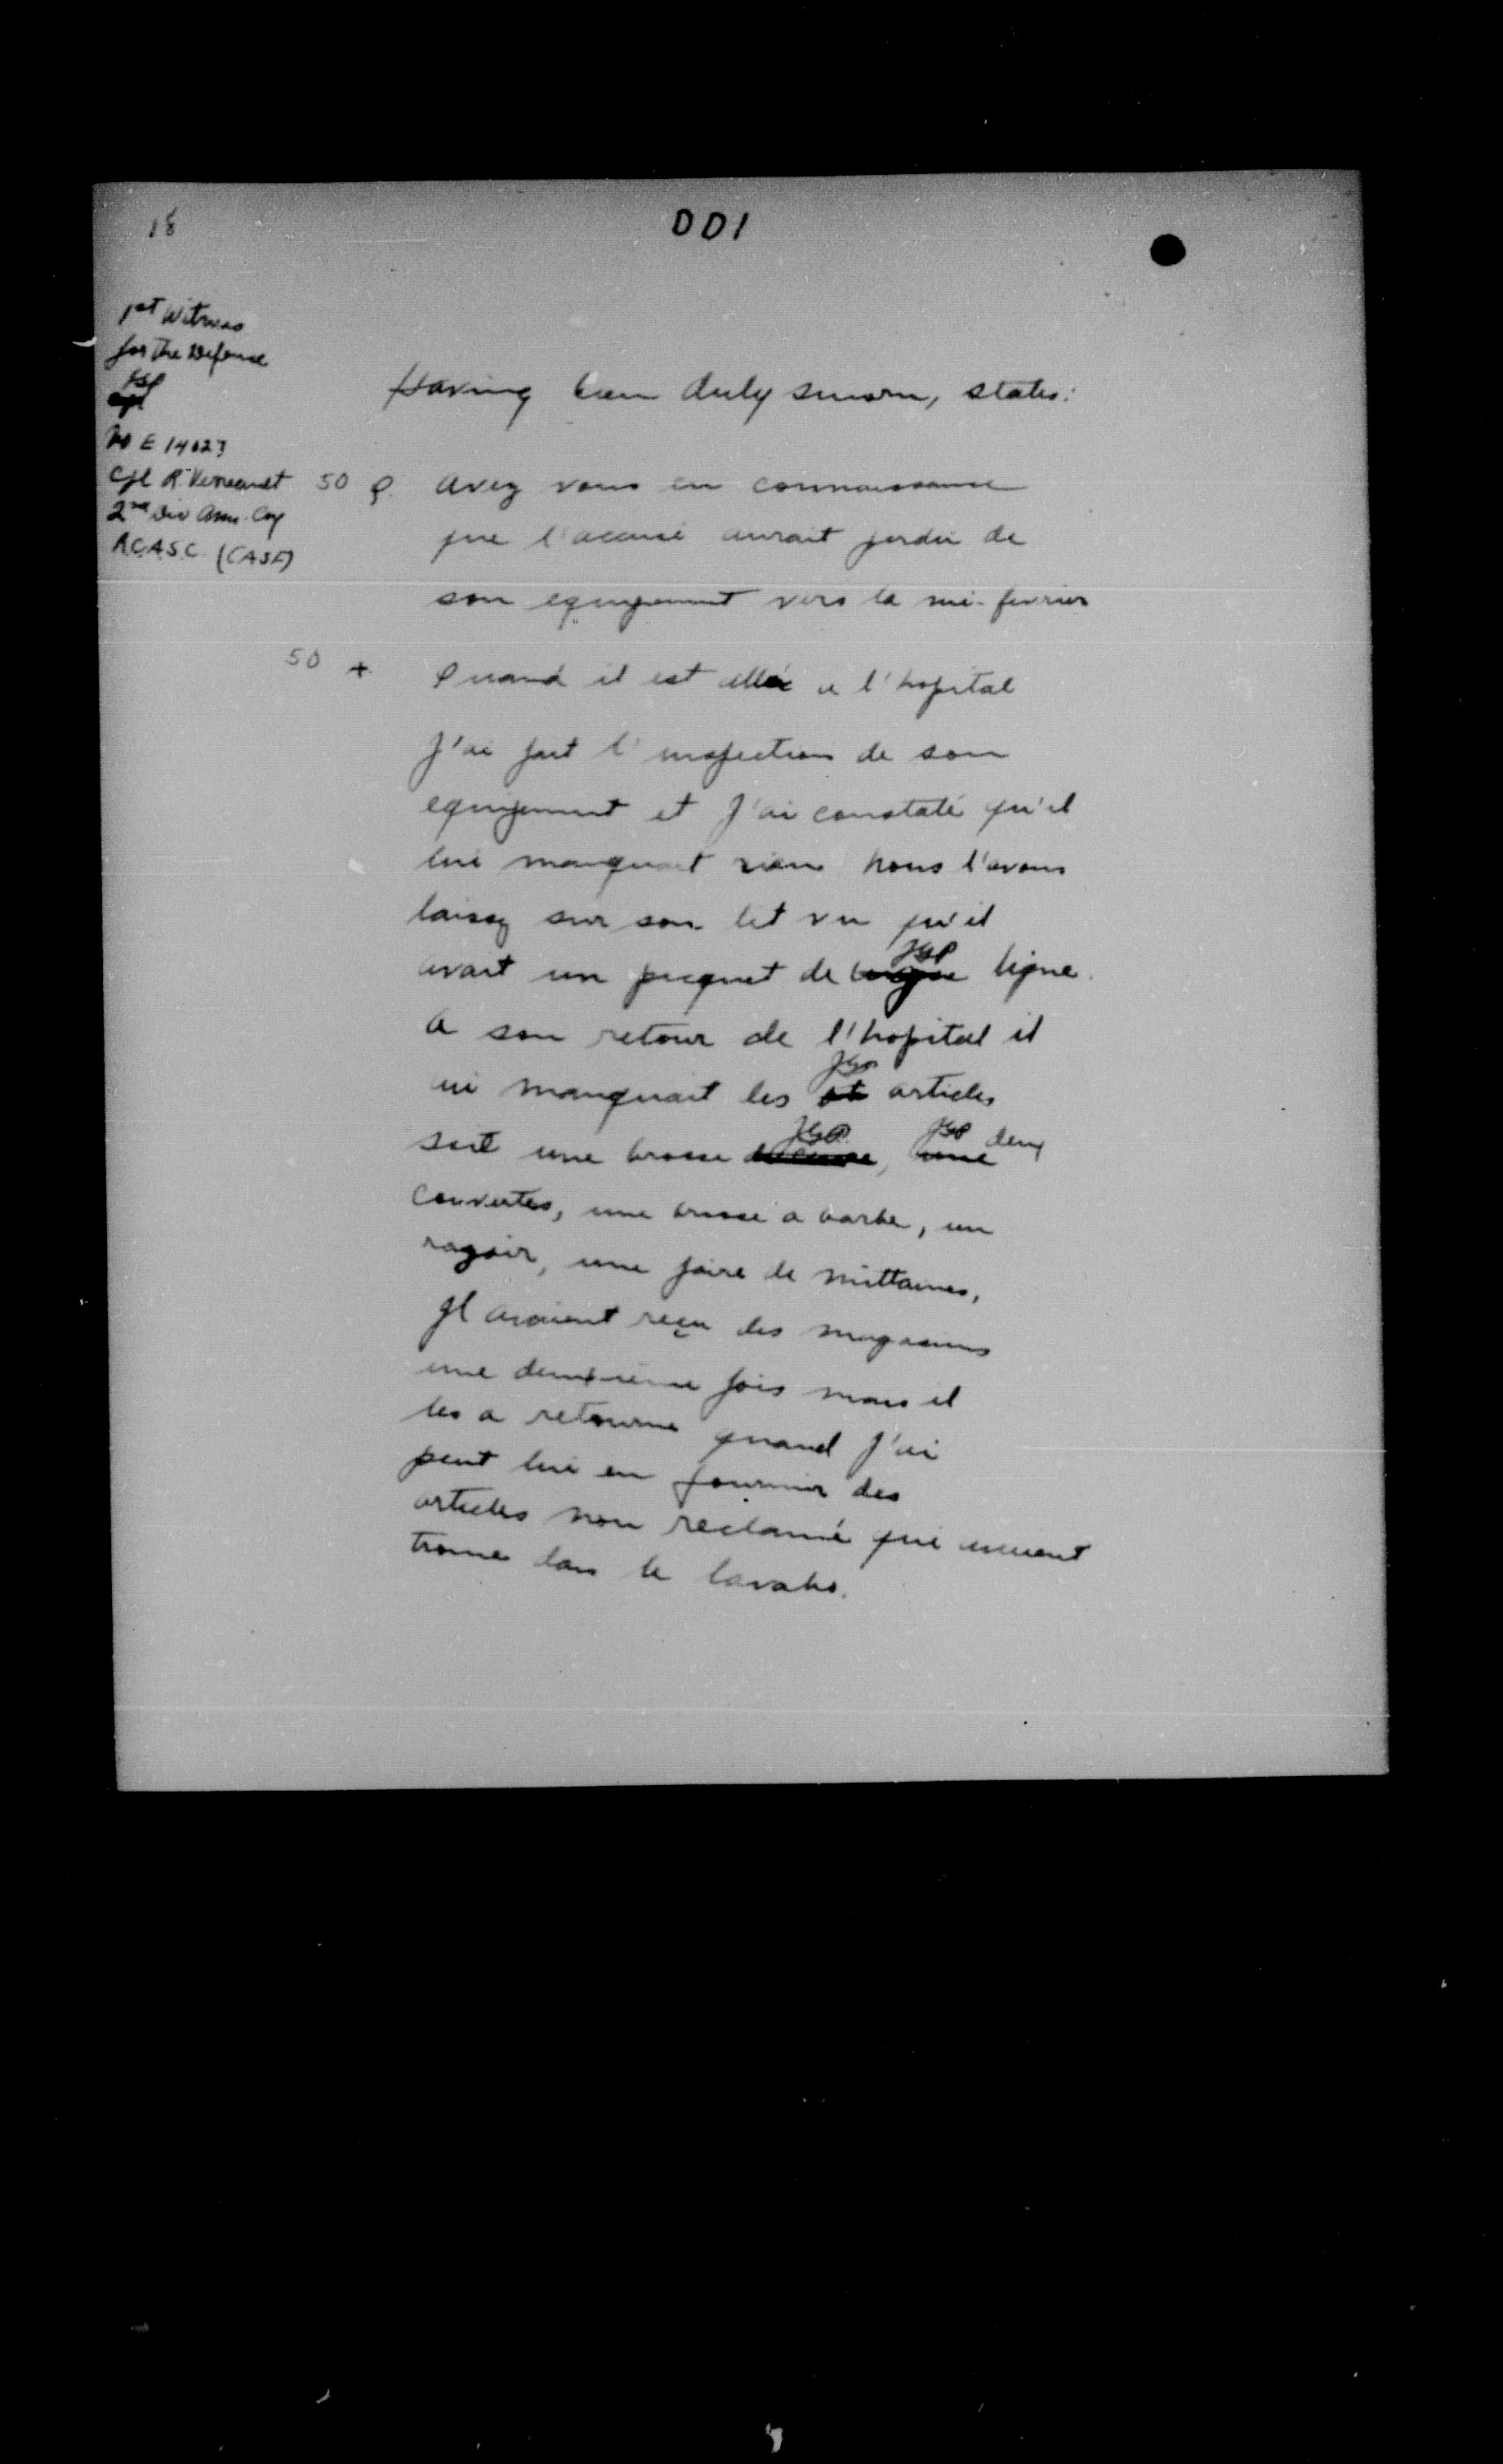 18
DD1
1st Witness
for the Defense
JGP
Cpl
No E 14023
Cpl R. Verreault
2nd Div Amn. Coy
R.C.A.S.C. (CASF)
Having been duly sworn, states:
50 Q. avez vous eu connaissance
que l'accusé aurait perdu de
son equipement vers la mi-fevrier
50 + Quand il est allé a l'hopital
J'ai fait l'inspection de son
equipement et J'ai constaté qu'il
lui manquait rien nous l'avons
laissez sur son lit vu qu'il
avait un picquet de JGP ligne.
a son retour de l'hopital il
lui manquait les JGP articles
soit une brosse JGP, une JGP deux
couvertes, une brosse a barbe, un
razoir, une paire de mittaines,
Il avaient reçu des magasins
une deuxième fois mais il
les a retourne quand J'ai
peut lui en fournir des
articles non reclamé qui avaient
trouve dans le lavabo.